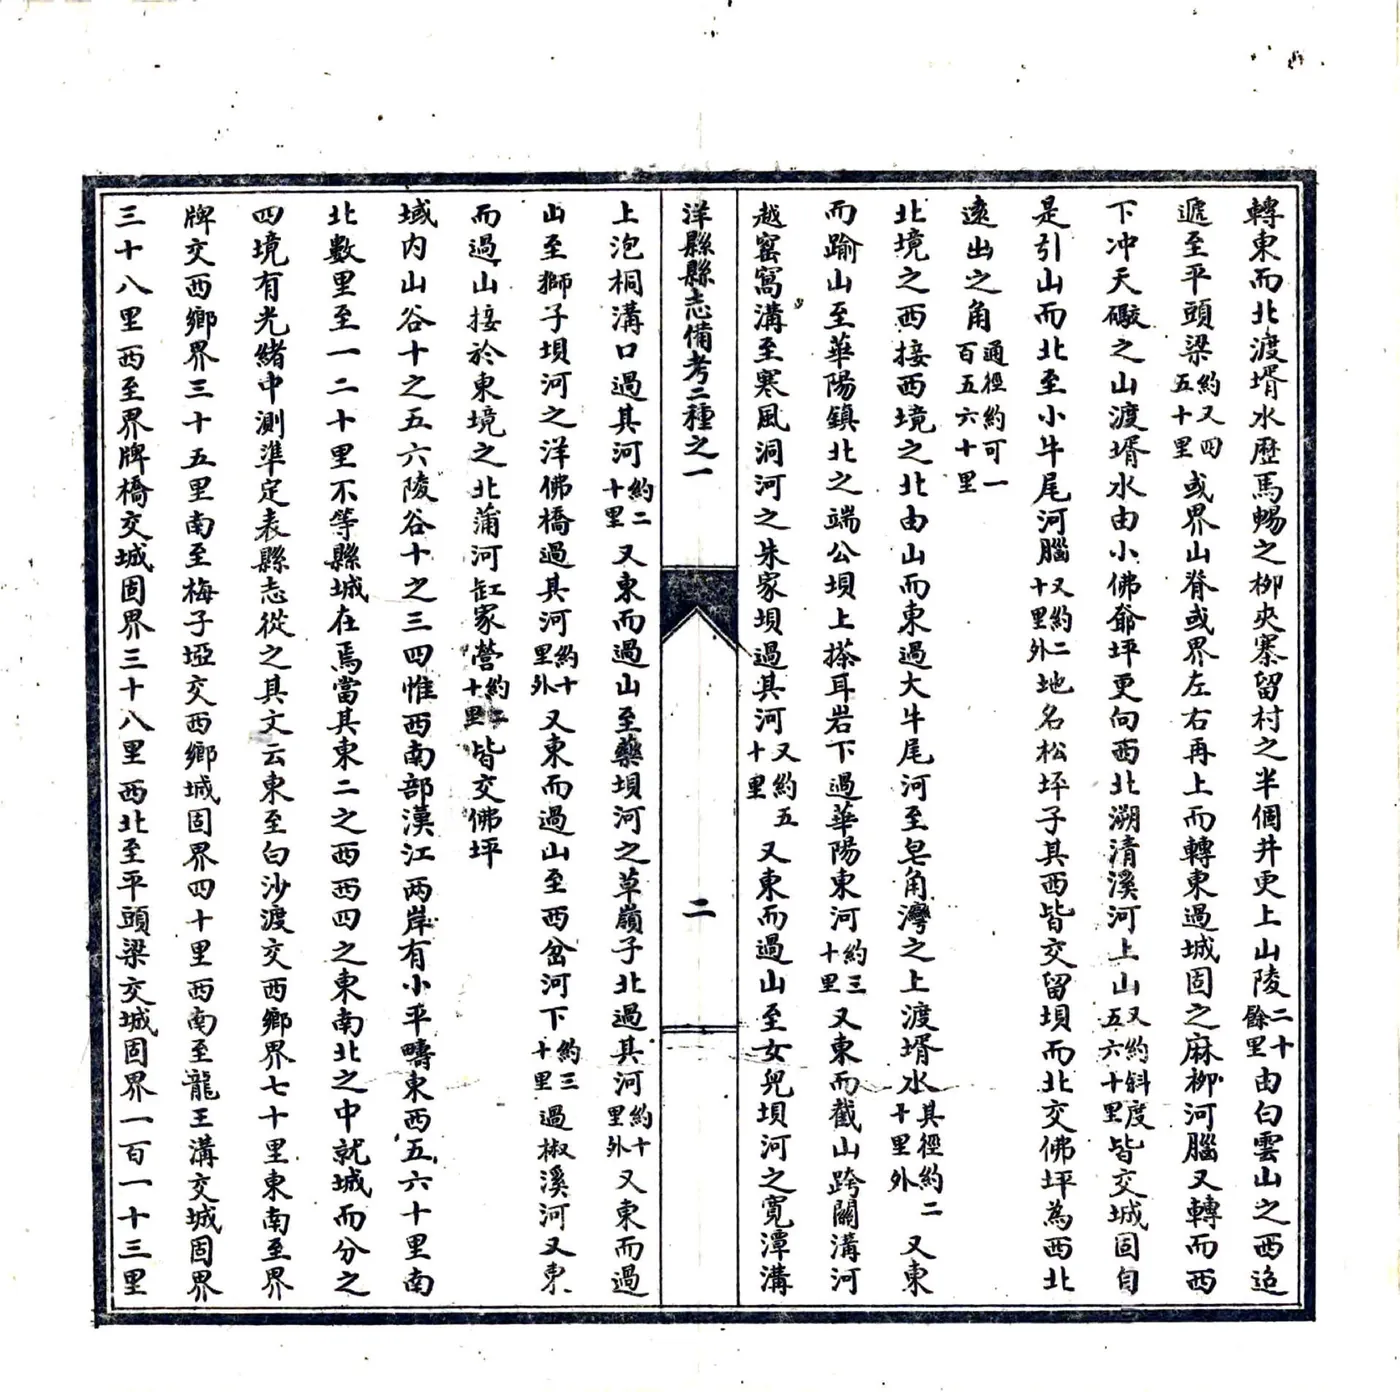 轉東而北渡壻水歷馬暢之柳夾寨留村之半個井更上山陵二十餘里由白雲山之西迤
遞至平頭梁約又四五十里或界山脊或界左右再上而轉東過城固之麻柳河腦又轉而西
下冲天礮之山渡壻水由小佛爺坪更向西北溯清溪河上山又約斜度五六十里皆交城固自
是引山而北至小牛尾河腦又約二十里外地名松坪子其西皆交留壩而北交佛坪為西北
遠出之角通徑約可一百五六十里
北境之西接西境之北由山而東過大牛尾河至皂角灣之上渡壻水其徑約二十里外又東
而踰山至華陽鎮北之端公壩上搽耳岩下過華陽東河約三十里又東而截山跨關溝河
越窑窩溝至寒風洞河之朱家壩過其河又約五十里又東而過山至女兒壩河之寬潭溝
洋縣縣志備考二種之一
二
上泡桐溝口過其河約二十里又東而過山至藥壩河之草嶺子北過其河約十里外又東而過
山至獅子壩河之洋佛橋過其河約十里外又東而過山至西岔河下約三十里過椒溪河又東
而過山接於東境之北蒲河缸家營約二十里皆交佛坪
域内山谷十之五六陵谷十之三四惟西南部漢江兩岸有小平疇東西五六十里南
北數里至一二十里不等縣城在焉當其東二之西西四之東南北之中就城而分之
四境有光緒中測準定表縣志從之其文云東至白沙渡交西鄉界七十里東南至界
牌交西鄉界三十五里南至梅子埡交西鄉城固界四十里西南至龍王溝交城固界
三十八里西至界牌橋交城固界三十八里西北至平頭梁交城固界一百一十三里